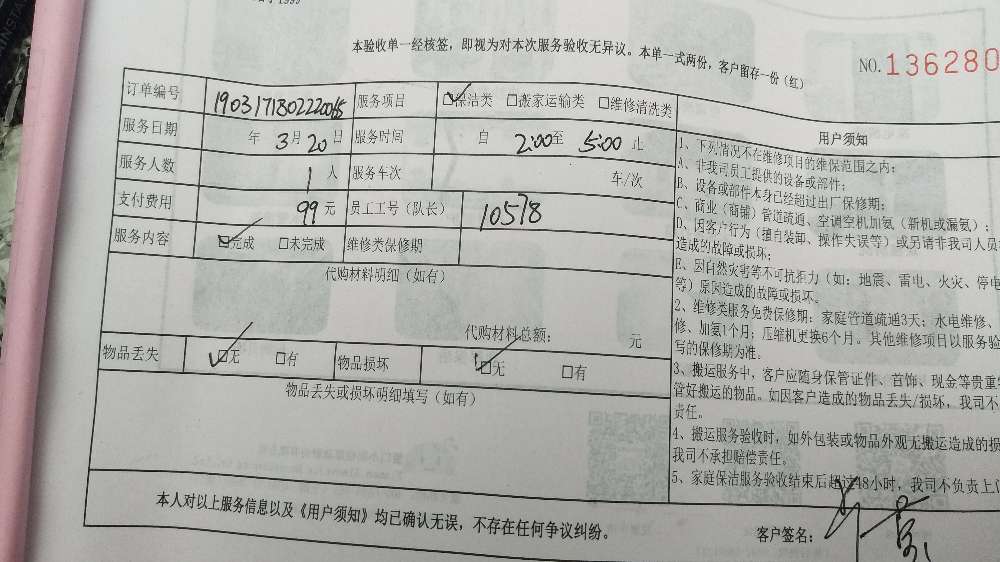 本验收单一经核签，即视为对本次服务验收无异议。本单一式两份，客户留存一份（红）
NO.136280
订单编号 服务项目 保洁类 □搬家运输类 □维修清洗类
服务日期 年 3月20日 服务时间 自 2:00至 5:00 止
服务人数 1 人 服务车次 车/次
支付费用 99元 员工工号（队长） 10578
服务内容 完成 □未完成 维修类保修期
代购材料明细（如有）
代购材料总额： 元
物品丢失 无 □有 物品损坏 无 □有
物品丢失或损坏明细填写（如有）
本人对以上服务信息以及《用户须知》均已确认无误，不存在任何争议纠纷。
客户签名：
用户须知
1、下列情况不在维修项目的维保范围之内：
A、非我司员工提供的设备或部件；
B、设备或部件本身已经超过出厂保修期；
C、商业（商铺）管道疏通、空调空机加氨（新机或漏氨）；
D、因客户行为（擅自装卸、操作失误等）或另请非我司人员
造成的故障或损坏；
E、因自然灾害等不可抗拒力（如：地震、雷电、火灾、停电
等）原因造成的故障或损坏。
2、维修类服务免费保修期：家庭管道疏通3天；水电维修、
修、加氨1个月；压缩机更换6个月。其他维修项目以服务验
写的保修期为准。
3、搬运服务中，客户应随身保管证件、首饰、现金等贵重
管好搬运的物品。如因客户造成的物品丢失/损坏，我司不
责任。
4、搬运服务验收时，如外包装或物品外观无搬运造成的损
我司不承担赔偿责任。
5、家庭保洁服务验收结束后超过48小时，我司不负责上